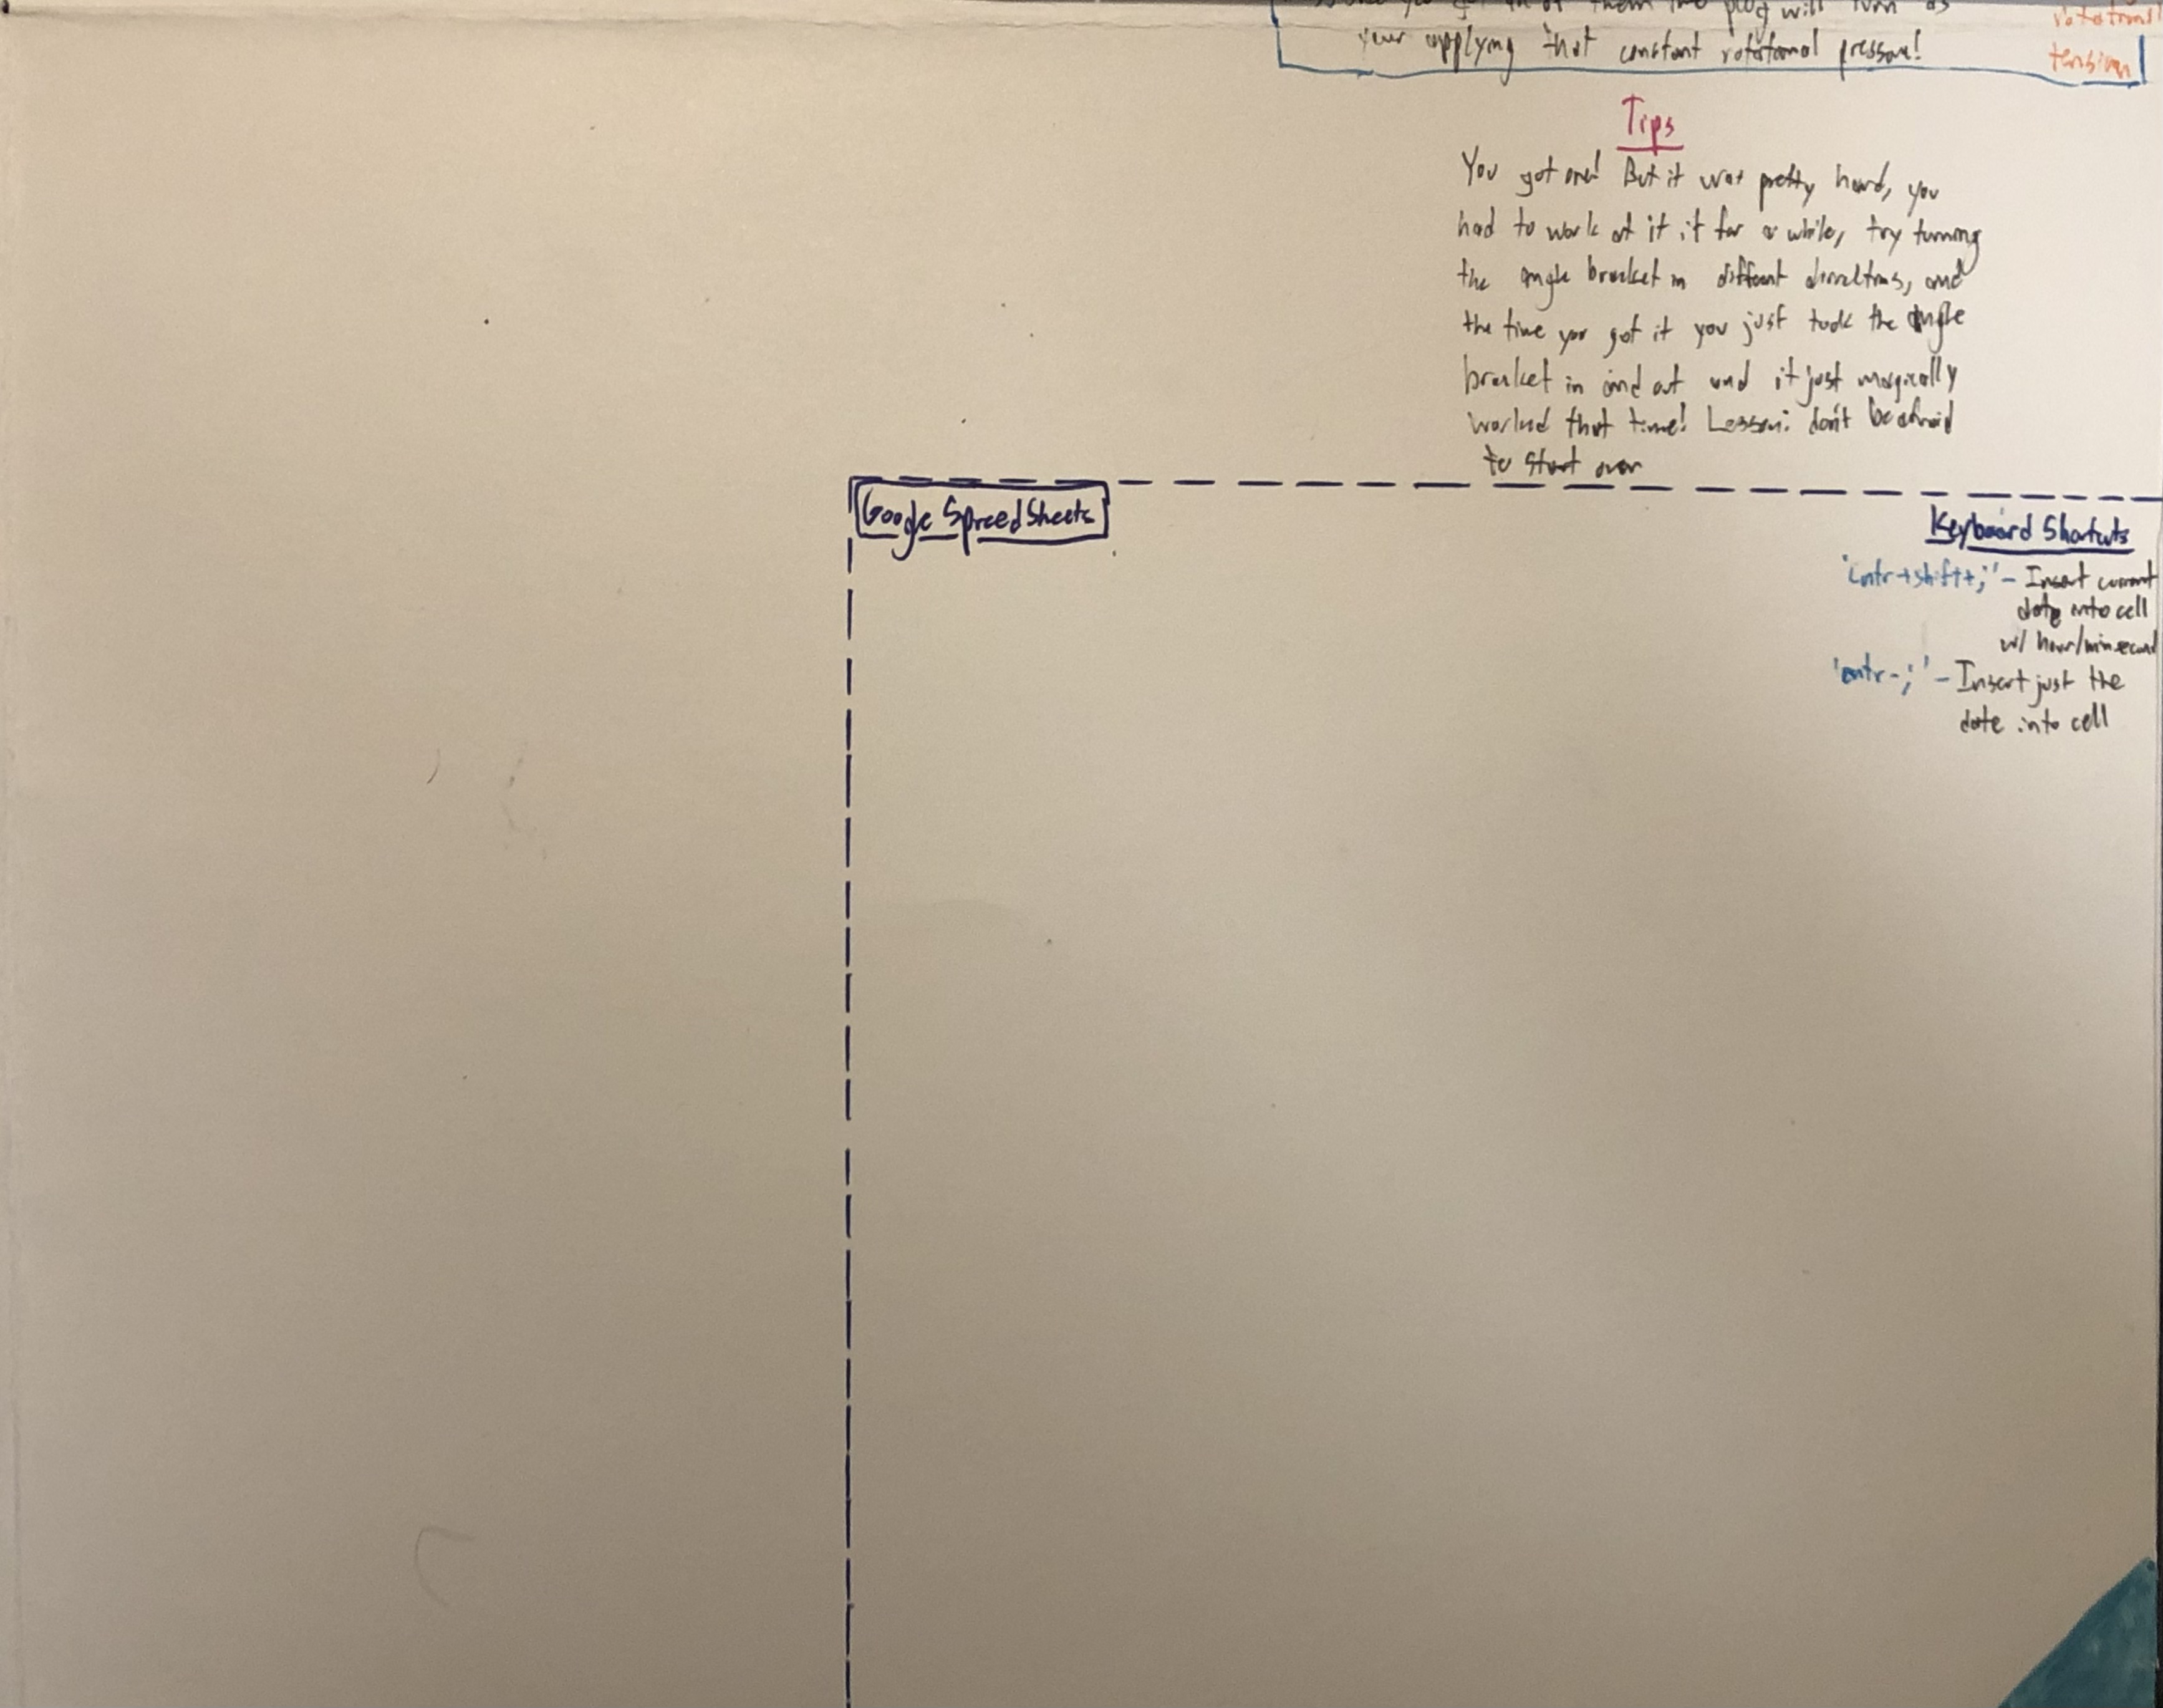 them the plug will turn as
your applying that constant rotational pressure!
rotational
tension
Tips
You got one! But it was pretty hard, you
had to work at it it for a while, try turning
the angle bracket in different directions, and
the time you got it you just took the angle
bracket in and out and it just magically
worked that time! Lesson: don't be afraid
to start over
Google SpreedSheets
Keyboard Shortcuts
'cntr+shift+;' - Insert current
date into cell
w/ hour/min/second
'cntr-;' - Insert just the
date into cell